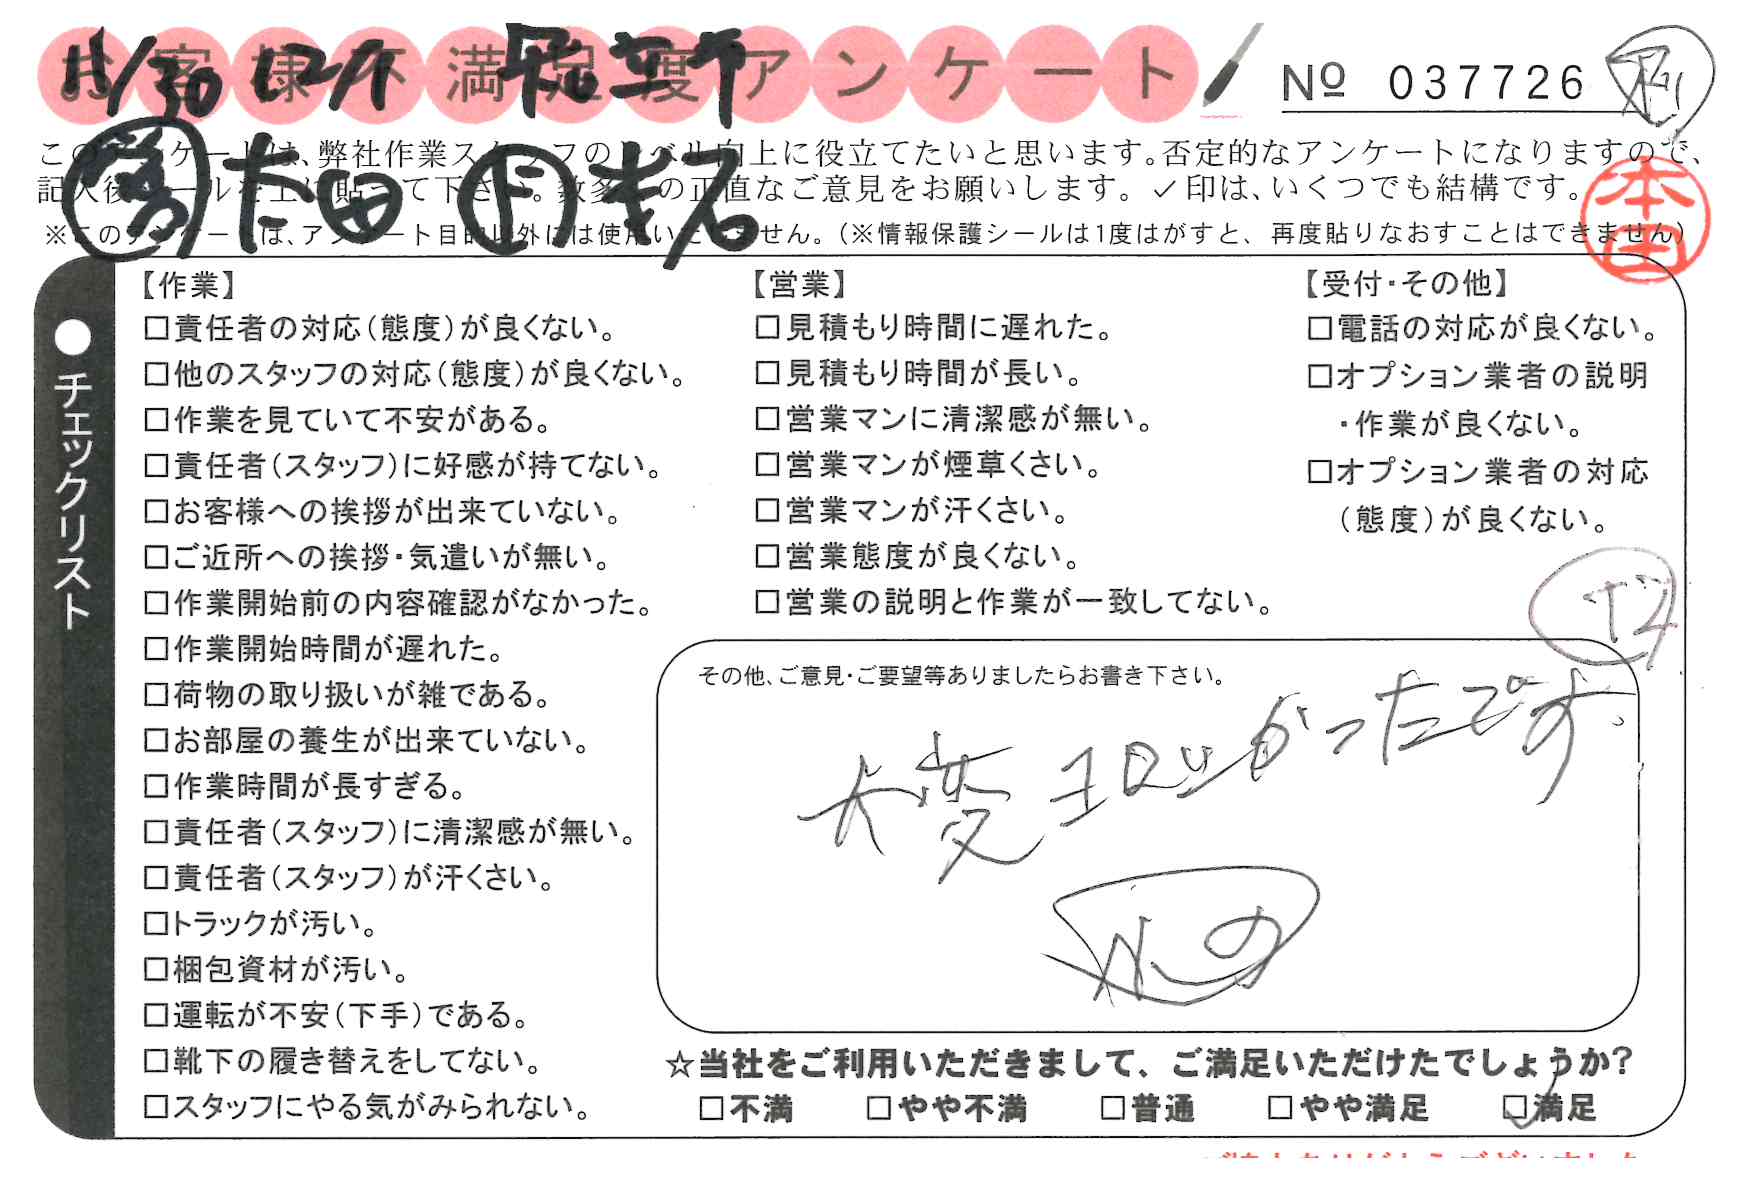 お客様不満足度アンケート
№ 037726
11/30
このアンケートは、弊社作業スタッフのレベル向上に役立てたいと思います。否定的なアンケートになりますので、
記入後シールを上に貼って下さい。数多くの正直なご意見をお願いします。✓印は、いくつでも結構です。
※このアンケートは、アンケート目的以外には使用いたしません。（※情報保護シールは1度はがすと、再度貼りなおすことはできません）
本田
●チェックリスト
【作業】
□責任者の対応（態度）が良くない。
□他のスタッフの対応（態度）が良くない。
□作業を見ていて不安がある。
□責任者（スタッフ）に好感が持てない。
□お客様への挨拶が出来ていない。
□ご近所への挨拶・気遣いが無い。
□作業開始前の内容確認がなかった。
□作業開始時間が遅れた。
□荷物の取り扱いが雑である。
□お部屋の養生が出来ていない。
□作業時間が長すぎる。
□責任者（スタッフ）に清潔感が無い。
□責任者（スタッフ）が汗くさい。
□トラックが汚い。
□梱包資材が汚い。
□運転が不安（下手）である。
□靴下の履き替えをしてない。
□スタッフにやる気がみられない。
【営業】
□見積もり時間に遅れた。
□見積もり時間が長い。
□営業マンに清潔感が無い。
□営業マンが煙草くさい。
□営業マンが汗くさい。
□営業態度が良くない。
□営業の説明と作業が一致してない。
【受付・その他】
□電話の対応が良くない。
□オプション業者の説明
・作業が良くない。
□オプション業者の対応
（態度）が良くない。
その他、ご意見・ご要望等ありましたらお書き下さい。
大変ヨロしかったです。
☆当社をご利用いただきまして、ご満足いただけたでしょうか？
□不満 □やや不満 □普通 □やや満足 ☑満足